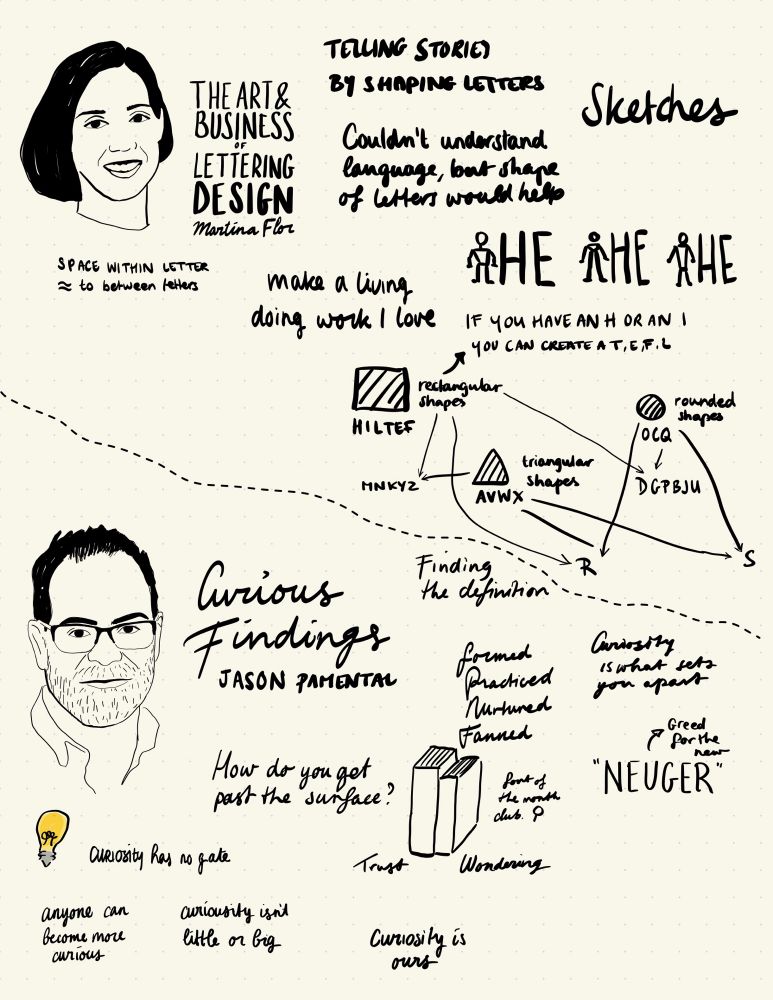 THE ART &
BUSINESS
OF
LETTERING
DESIGN
Martina Flor
TELLING STORIES
BY SHAPING LETTERS
Sketches
Couldn't understand
language, but shape
of letters would help
SPACE WITHIN LETTER
≈ to between letters
make a living
doing work I love
HE HE HE
IF YOU HAVE AN H OR AN I
YOU CAN CREATE A T, E, F, L
rectangular
shapes
HILTEF
rounded
shapes
OCQ
triangular
shapes
AVWX
MNKYZ
DGPBJU
R
S
Curious
Findings
JASON PAMENTAL
Finding
the definition
formed
Practiced
Nurtured
Fanned
Curiosity
is what sets
you apart
Greed
for the
new
"NEUGER"
How do you get
past the surface?
font of
the month
club.
Trust
Wondering
curiosity has no gate
anyone can
become more
curious
curiousity isn't
little or big
Curiosity is
ours